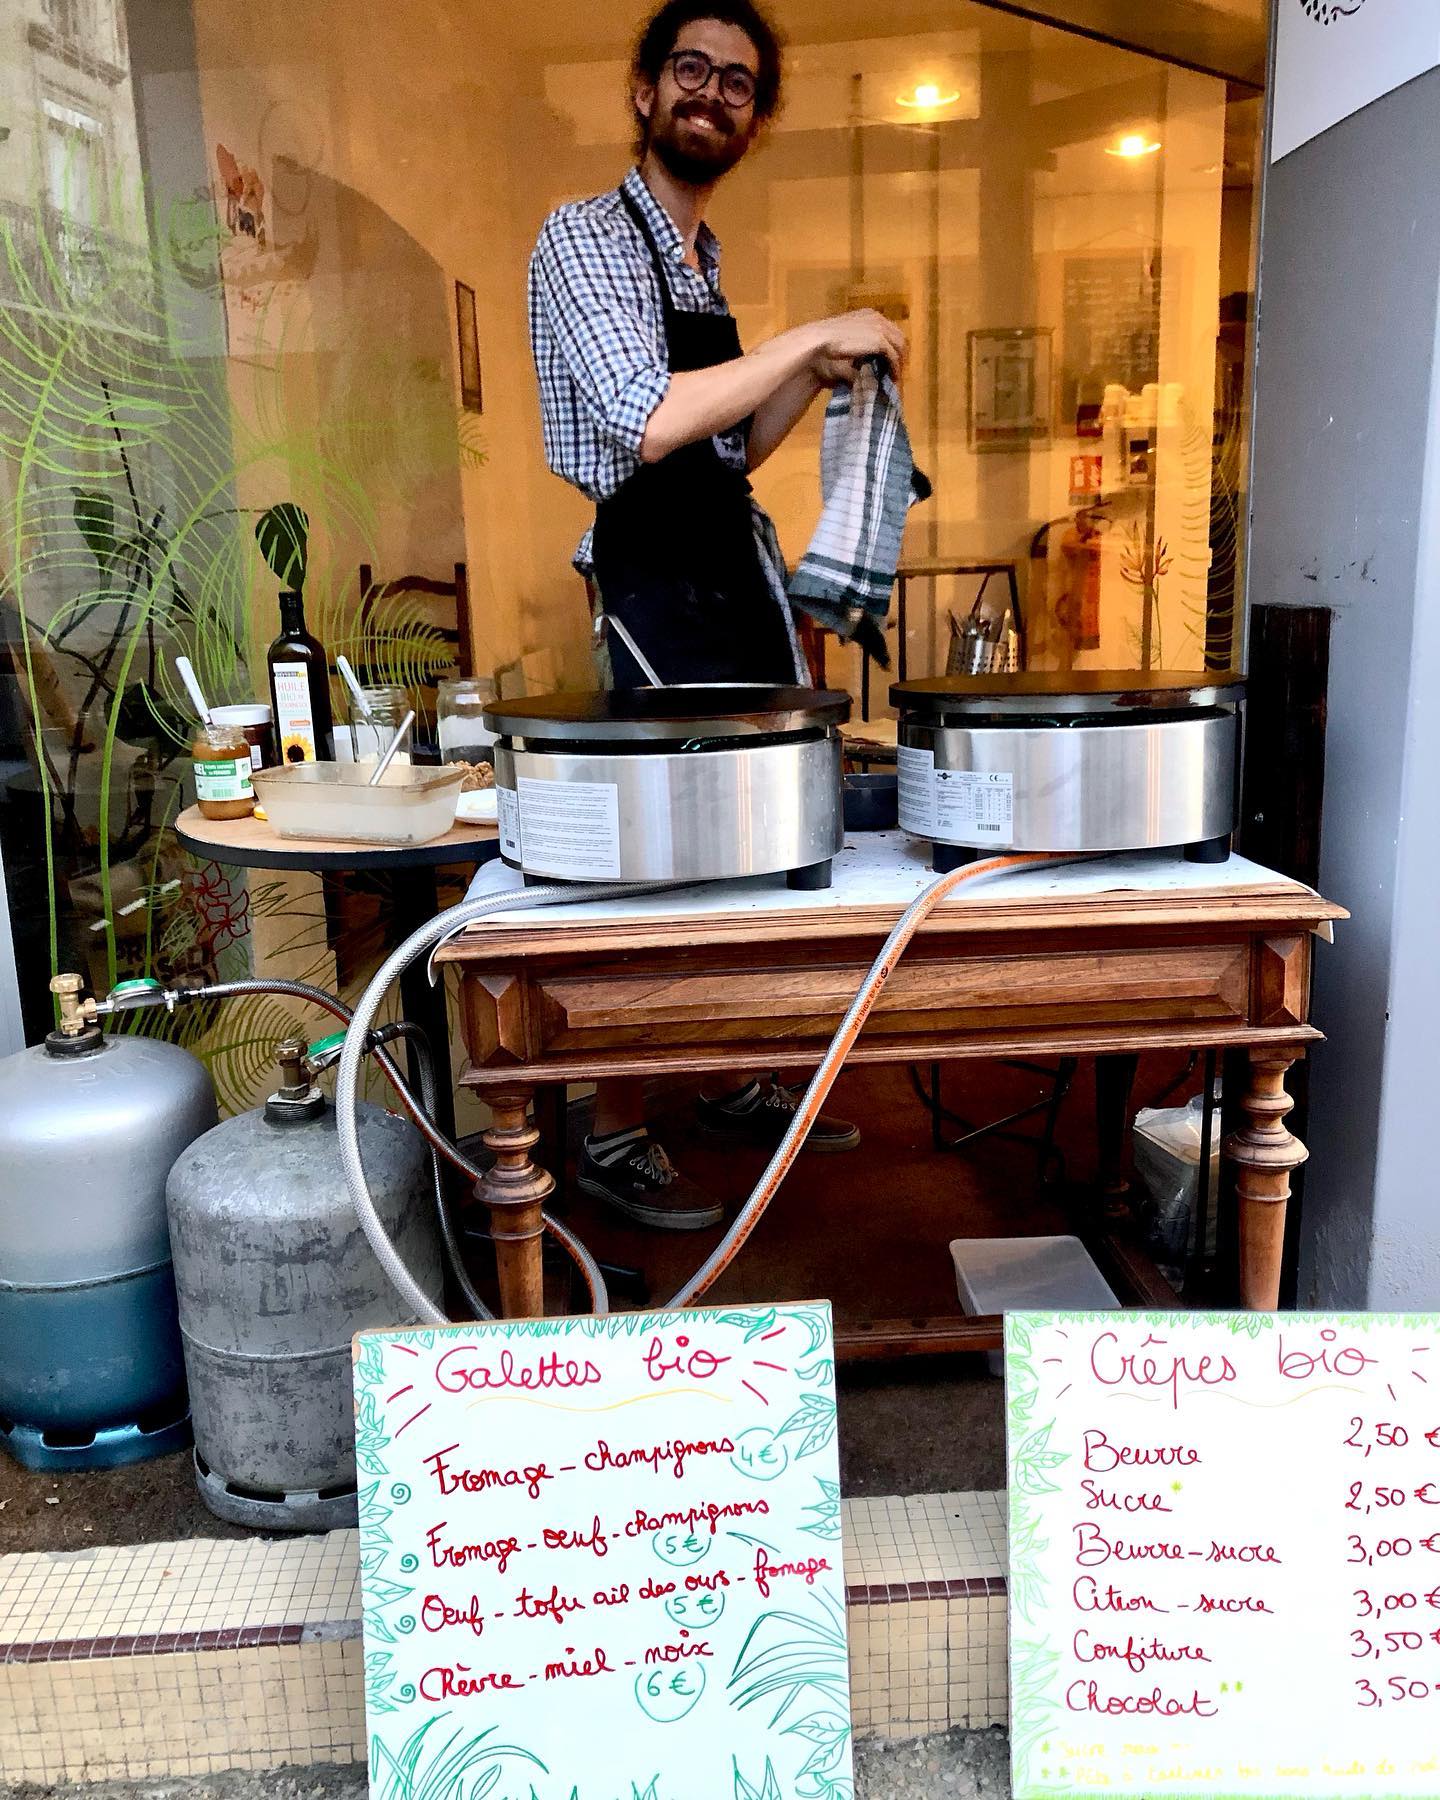 HUILE
BIO DE
MIEL
Galettes bio
Fromage - champignons 4€
Fromage - oeuf - champignons
5€
Oeuf - tofu ail des ours - fromage
5€
Chèvre - miel - noix
6€
Crêpes bio
Beurre 2,50 €
Sucre* 2,50 €
Beurre - sucre 3,00 €
Citron - sucre 3,00 €
Confiture 3,50 €
Chocolat** 3,50 €
* Sucre
** Pâte à tartiner bio sans huile de